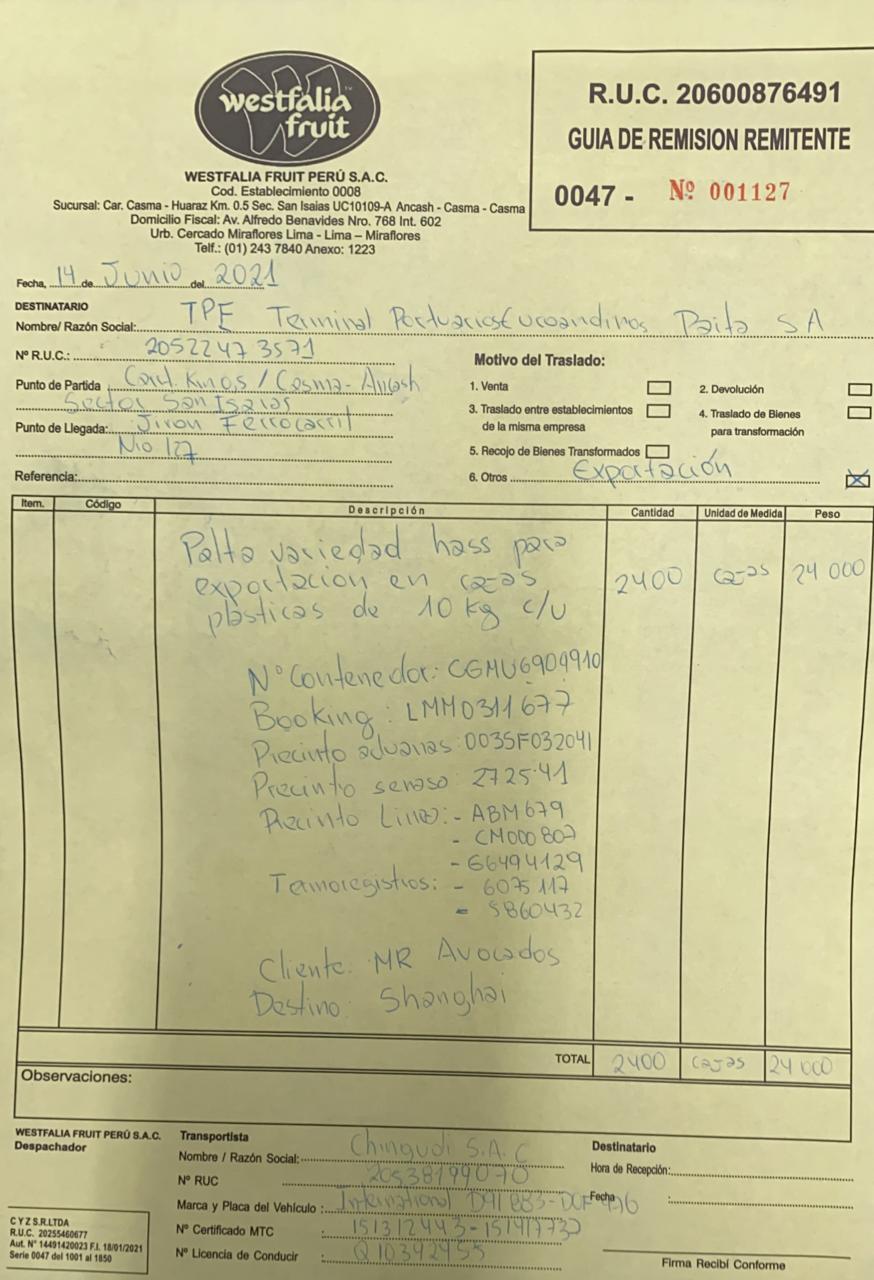 westfalia
fruit
WESTFALIA FRUIT PERÚ S.A.C.
Cod. Establecimiento 0008
Sucursal: Car. Casma - Huaraz Km. 0.5 Sec. San Isaias UC10109-A Ancash - Casma - Casma
Domicilio Fiscal: Av. Alfredo Benavides Nro. 768 Int. 602
Urb. Cercado Miraflores Lima - Lima – Miraflores
Telf.: (01) 243 7840 Anexo: 1223
R.U.C. 20600876491
GUIA DE REMISION REMITENTE
0047 - Nº 001127
Fecha, 14 de Junio del 2021
DESTINATARIO
Nombre/ Razón Social: TPE Terminal Portuarios Euroandinos Paita SA
Nº R.U.C.: 20522473571
Punto de Partida Casma - Ancash
Sector San Isaias
Punto de Llegada: Jiron Ferrocarril
Nro 127
Referencia:
Motivo del Traslado:
1. Venta 2. Devolución
3. Traslado entre establecimientos de la misma empresa 4. Traslado de Bienes para transformación
5. Recojo de Bienes Transformados
6. Otros Exportación X
Item. Código Descripción Cantidad Unidad de Medida Peso
Palta variedad hass para
exportacion en cajas 2400 cajas 24 000
plasticas de 10 kg c/u
Nº Contenedor: CGMU6909910
Booking: LMM0311677
Precinto aduanas: 003SF032041
Precinto senasa: 272541
Precinto Linea: - ABM679
- CM000807
- G6494129
Termoregistros: - 6075117
- SB60432
Cliente: MR Avocados
Destino: Shanghai
TOTAL 2400 cajas 24 000
Observaciones:
WESTFALIA FRUIT PERÚ S.A.C.
Despachador
Transportista
Nombre / Razón Social: Chingudi S.A.C
Nº RUC 20538199070
Marca y Placa del Vehículo: International
Nº Certificado MTC 151312443-
Nº Licencia de Conducir Q10392955
Destinatario
Hora de Recepción:
Fecha
Firma Recibí Conforme
C Y Z S.R.LTDA
R.U.C. 20255460677
Aut. Nº 14491420023 F.I. 18/01/2021
Serie 0047 del 1001 al 1850